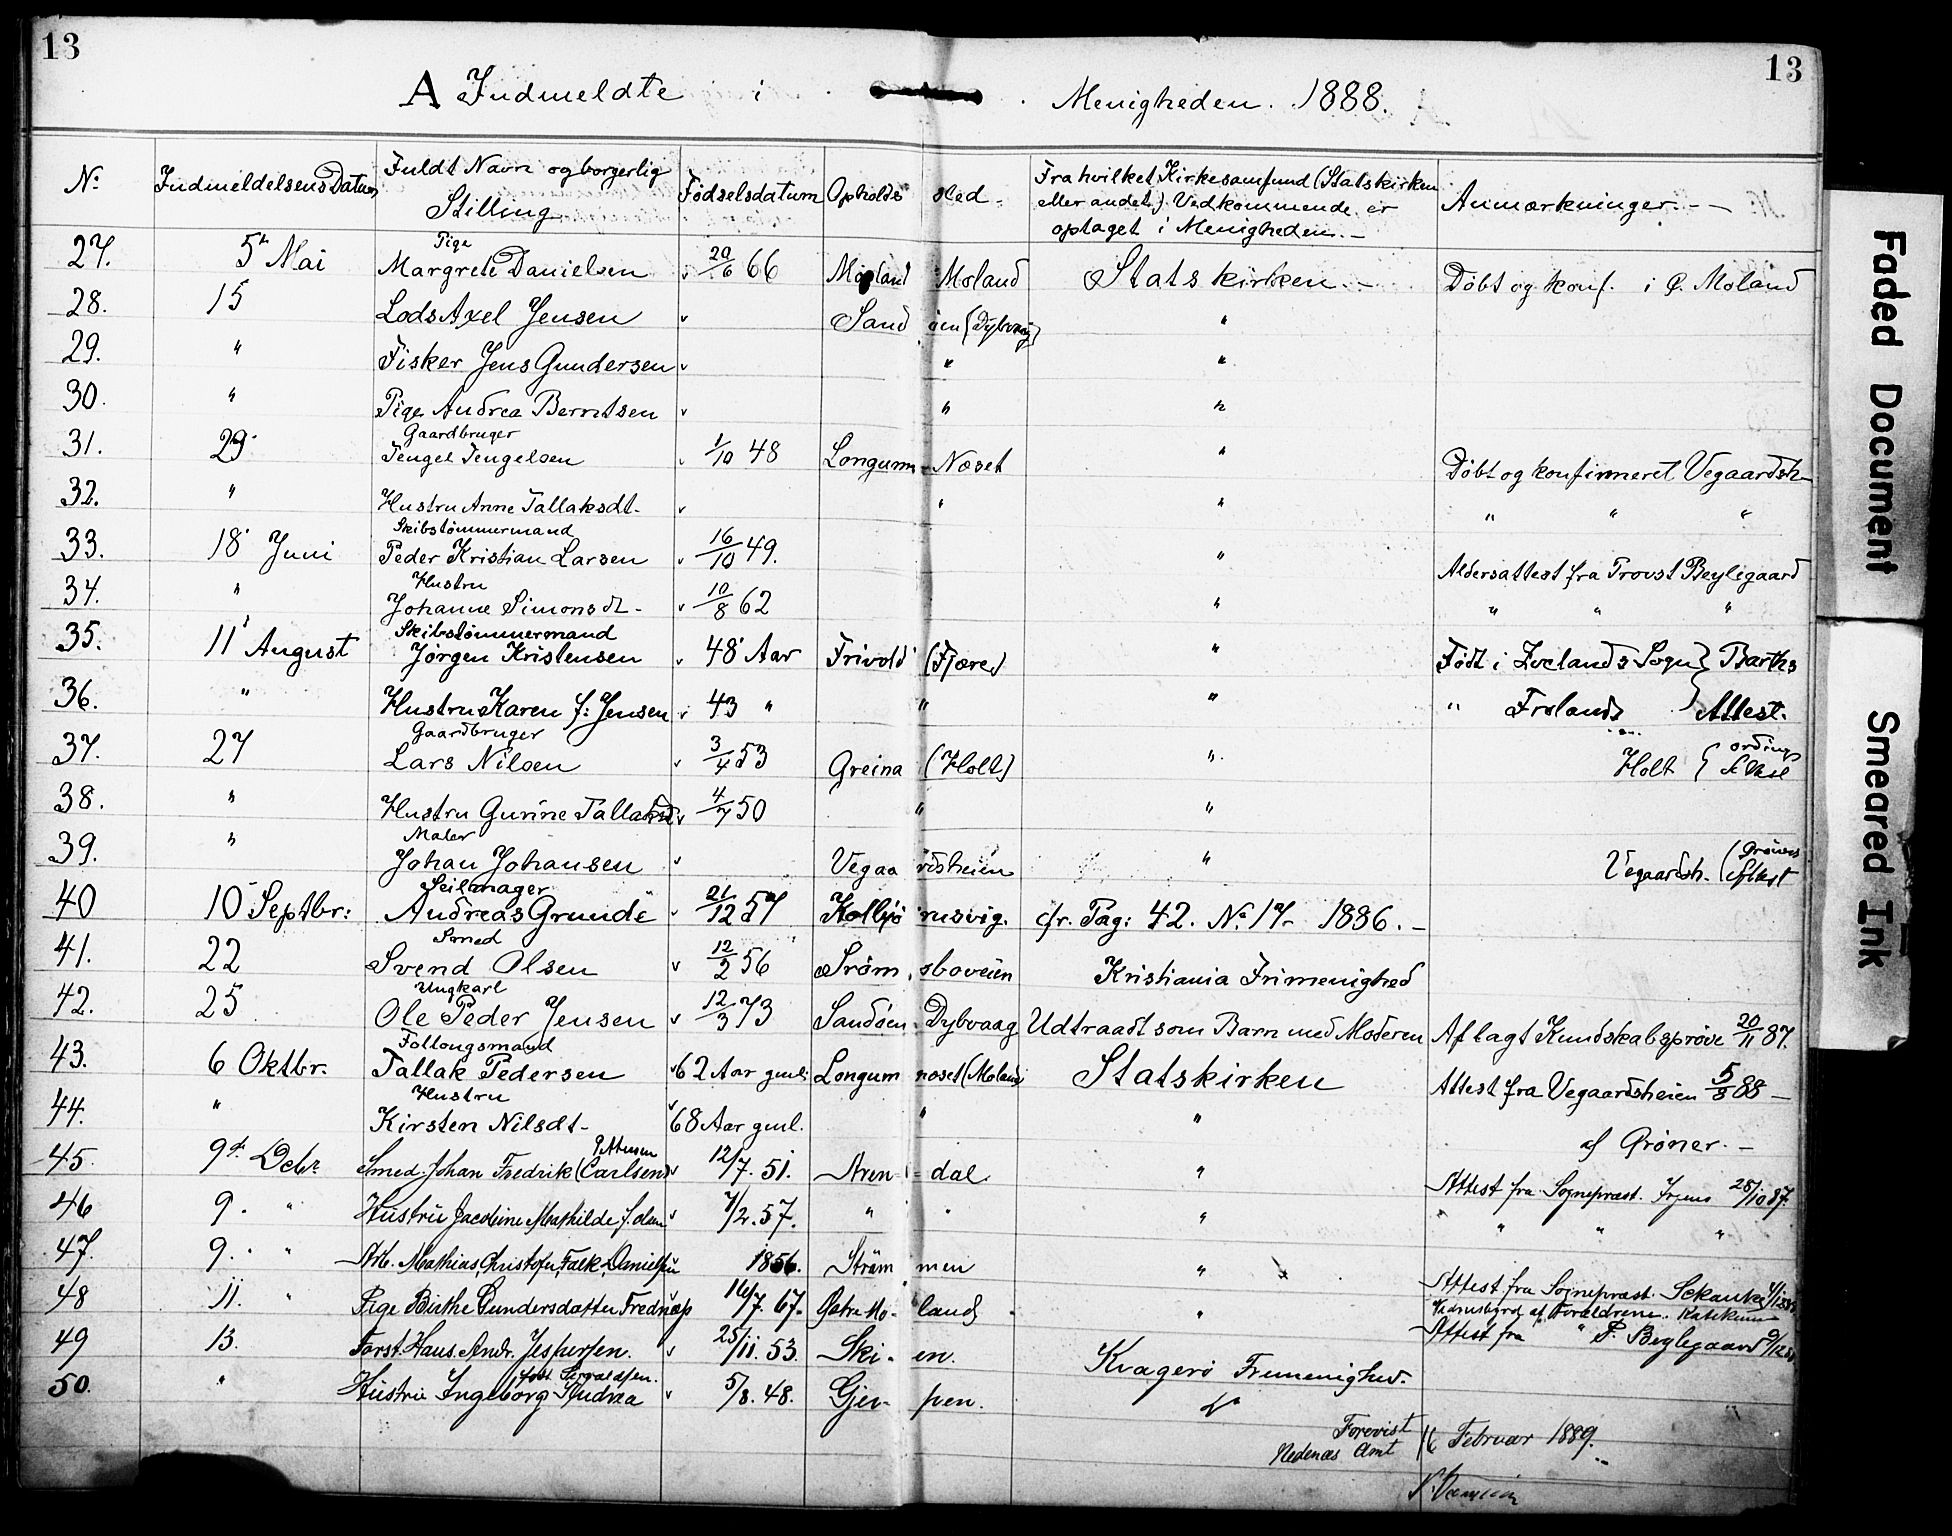 13 13
A Indmeldte i Menigheden. 1888.
No Indmeldelsens Datum Fuldt Navn og borgerlig Stilling Födselsdatum Opholds sted - Fra hvilket Kirkesamfund (Statskirken eller andet) Vedkommende er optaget i Menigheden.- Anmærkninger.--
27. 5te Mai Pige Margrete Danielsen 20/6 66 Moland Moland Statskirken.- Döbt og konf. i Ø. Moland
28. 15 Lods Axel Jensen Sand öen (Dybvaag) "
29. " Fisker Jens Gundersen " "
30. " Pige Andrea Berntsen " "
31. 29 Gaardbruger Tengel Tengelsen 1/10 48 Longum - Næset " Döbt og konfirmeret Vegaardsh-
32. " Hustru Anne Tallaksdt- " " " " "
33. 18 Juni Skibstömmermand Peder Kristian Larsen 16/10 49. " Aldersattest fra Provst Beylegaard
34. " Hustru Johanne Simonsdt- 10/8 62 " " " "
35. 11 August Skibstömmermand Jørgen Kristensen 48 Aar Frivold (Fjære) " Födt i Sogn } Barths
36. " Hustru Karen f: Jensen 43 " " " " Froland } Attest.
37. 27 Gaardbruger Lars Nilsen 3/4 53 Greina (Holt) " Holt
38. " Hustru Gurine Tallaksd. 4/7 50 " "
39. " Maler Johan Johansen Vegaa rdsheien " Vegaardsh. (Gröners Attest
40 10 Septbr: Seilmager Andreas Grunde 21/12 57 Kolbjö rnsvig. cfr. Pag: 42. No 17. 1886.-
41. 22 Smed Svend Olsen 12/2 56 Ström sboveien Kristiania Frimenighed
42. 25 Ungkarl Ole Peder Jensen 12/3 73 Sandöen - Dybvaag Udtraadt som Barn med Moderen Aflagt Kundskabspröve 20/11 87.
43. 6 Oktbr. Follougsmand Tallak Pedersen 62 Aar gml. Longum næset (Moland) Statskirken Attest fra Vegaardsheien 5/8 88 -
44. " Hustru Kirsten Nilsdt- 68 Aar gml. " " af Gröner.-
45. 9de Debr. Smed. Johan Fredrik (Carlsen) 12/7. 51. Aren - dal. " Attest fra Sognepræst. 28/10 87.
46 9. " Hustru Jacobine Mathilde f. olsen 7/2. 57. " " " " " " "
47. 9. " Arb. Mathias, Christofer, Falk, Danielsen 1856. Ström men " Attest fra Sognepræst.
48 11. " Pige Birthe Gundersdatter 16/7. 67. Östre Mo- land " af Forældrene.
49 13. Forst. Hans. Andr. Jespersen. 25/11. 53. Ski- en. Kragerö Frimenighed. Attest fra " P. Beylegaard
50. " Hustru Ingeborg Andrea 5/8. 48. Gjer- pen. do
Forevist
Nedenæs Amt 16 Februar 1889.
Faded Document
Smeared Ink